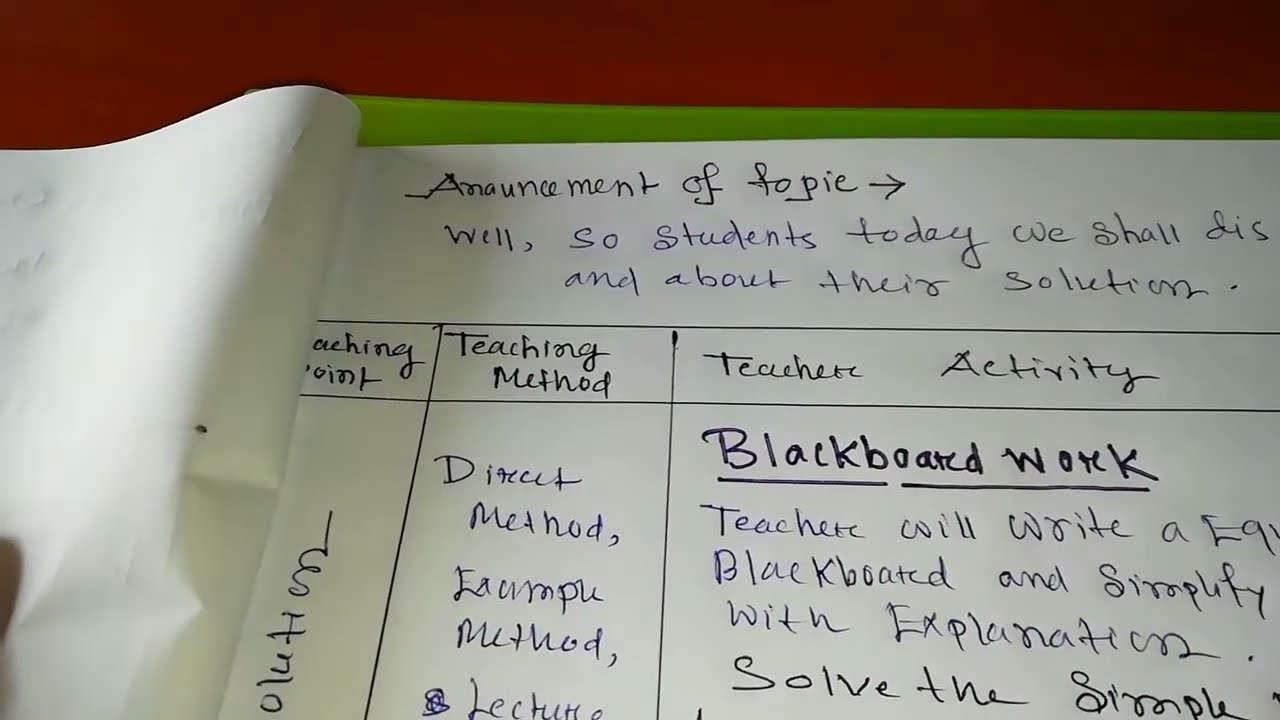 Anauncement of topic →
Well, so students today we shall dis
and about their solution.
aching
oint
Teaching
Method
Teacher Activity
Direct
Method,
Example
Method,
Lecture
olution
Blackboard Work
Teacher will write a Equ
Blackboard and Simplify
with Explanation.
Solve the Simple